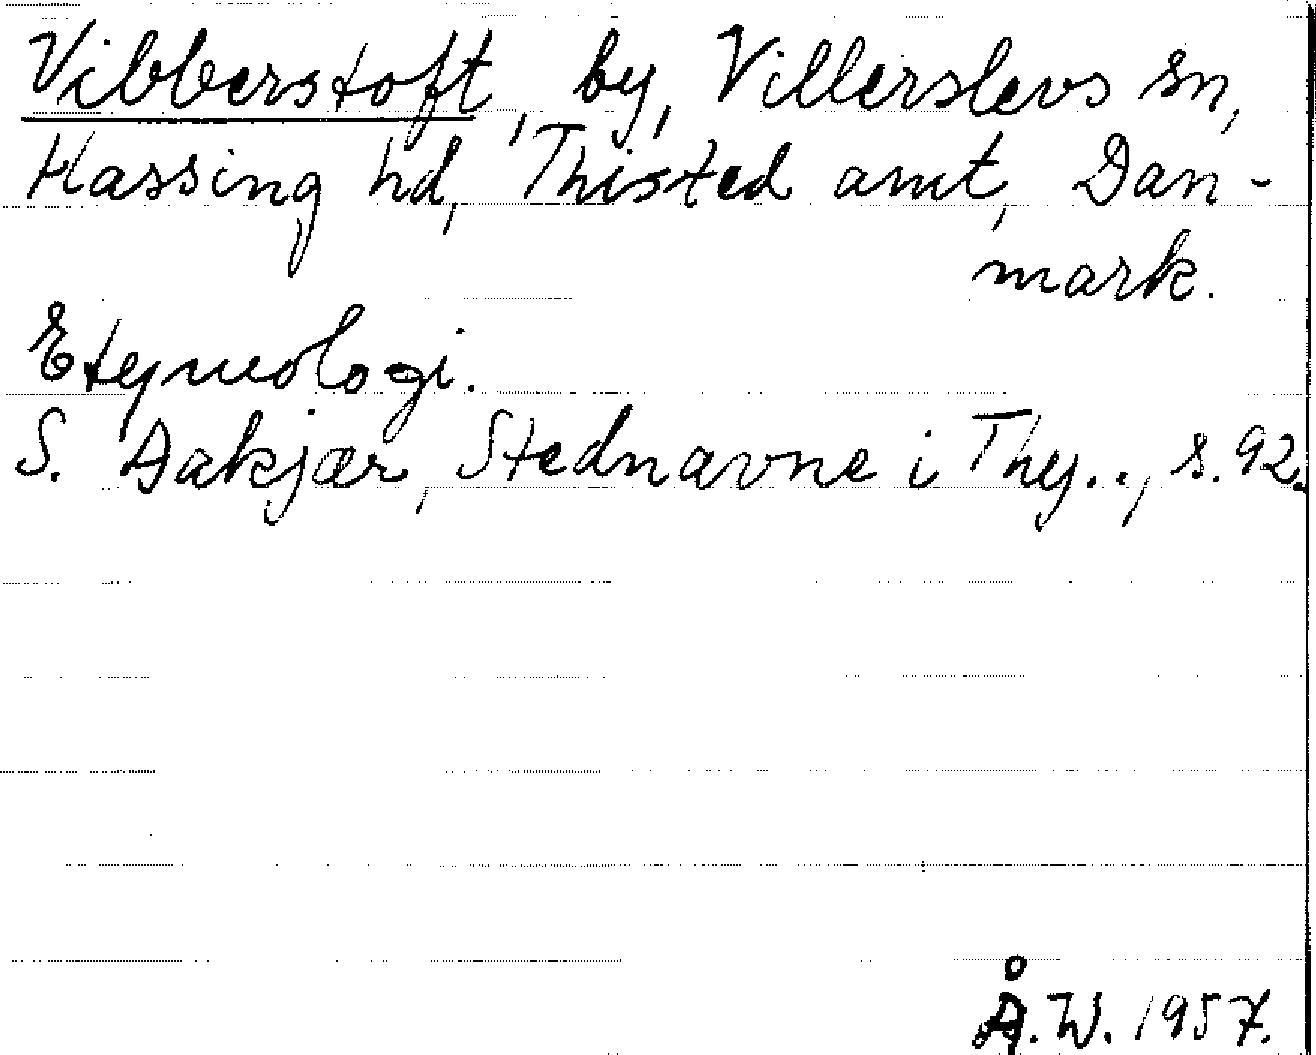 Vibberstoft, by, Villerslevs sn,
Hassing hd, Thisted amt, Dan-
mark.
Etymologi.
S. Aakjær, Stednavne i Thy.., s. 92.
Å.W. 1957.